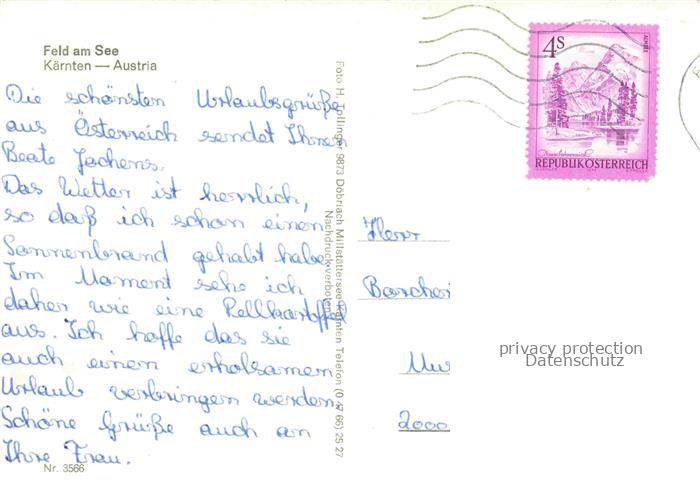 Feld am See
Kärnten — Austria
Die schönsten Urlaubsgrüße
aus Österreich sendet Ihnen
Beate Jachens.
Das Wetter ist herrlich,
so daß ich schon einen
Sonnenbrand gehabt habe.
Im Moment sehe ich
daher wie eine Pellkartoffel
aus. Ich hoffe das sie
auch einen erholsamen
Urlaub verbringen werden.
Schöne Grüße auch an
Ihre Frau.
Nr. 3566
Foto H. Tollinger 9873 Döbriach Millstättersee Kärnten Telefon (0 42 66) 25 27
Nachdruck verboten
4S
ALMSEE
REPUBLIK ÖSTERREICH
Herr
2000
privacy protection
Datenschutz